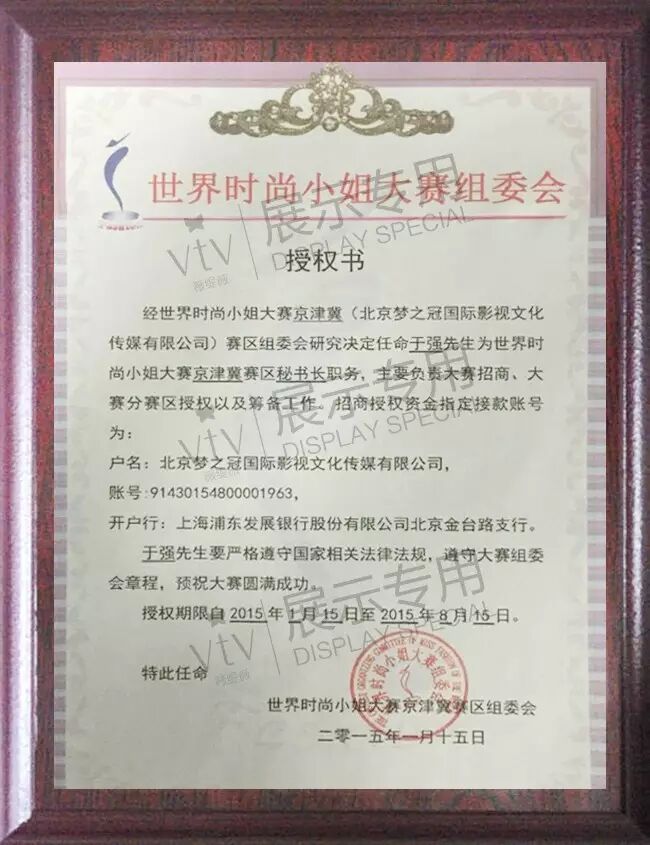 世界时尚小姐大赛组委会
授权书
经世界时尚小姐大赛京津冀（北京梦之冠国际影视文化
传媒有限公司）赛区组委会研究决定任命于强先生为世界时
尚小姐大赛京津冀赛区秘书长职务，主要负责大赛招商、大
赛分赛区授权以及筹备工作。招商授权资金指定接款账号
为：
户名：北京梦之冠国际影视文化传媒有限公司，
账号:91430154800001963，
开户行：上海浦东发展银行股份有限公司北京金台路支行。
于强先生要严格遵守国家相关法律法规，遵守大赛组委
会章程，预祝大赛圆满成功。
授权期限自 2015 年 1 月 15 日至 2015 年 8 月 15 日。
特此任命
世界时尚小姐大赛京津冀赛区组委会
二零一五年一月十五日
vtv
薇缇薇
展示专用
DISPLAY SPECIAL
vtv
薇缇薇
展示专用
DISPLAY SPECIAL
vtv
薇缇薇
展示专用
DISPLAY SPECIAL